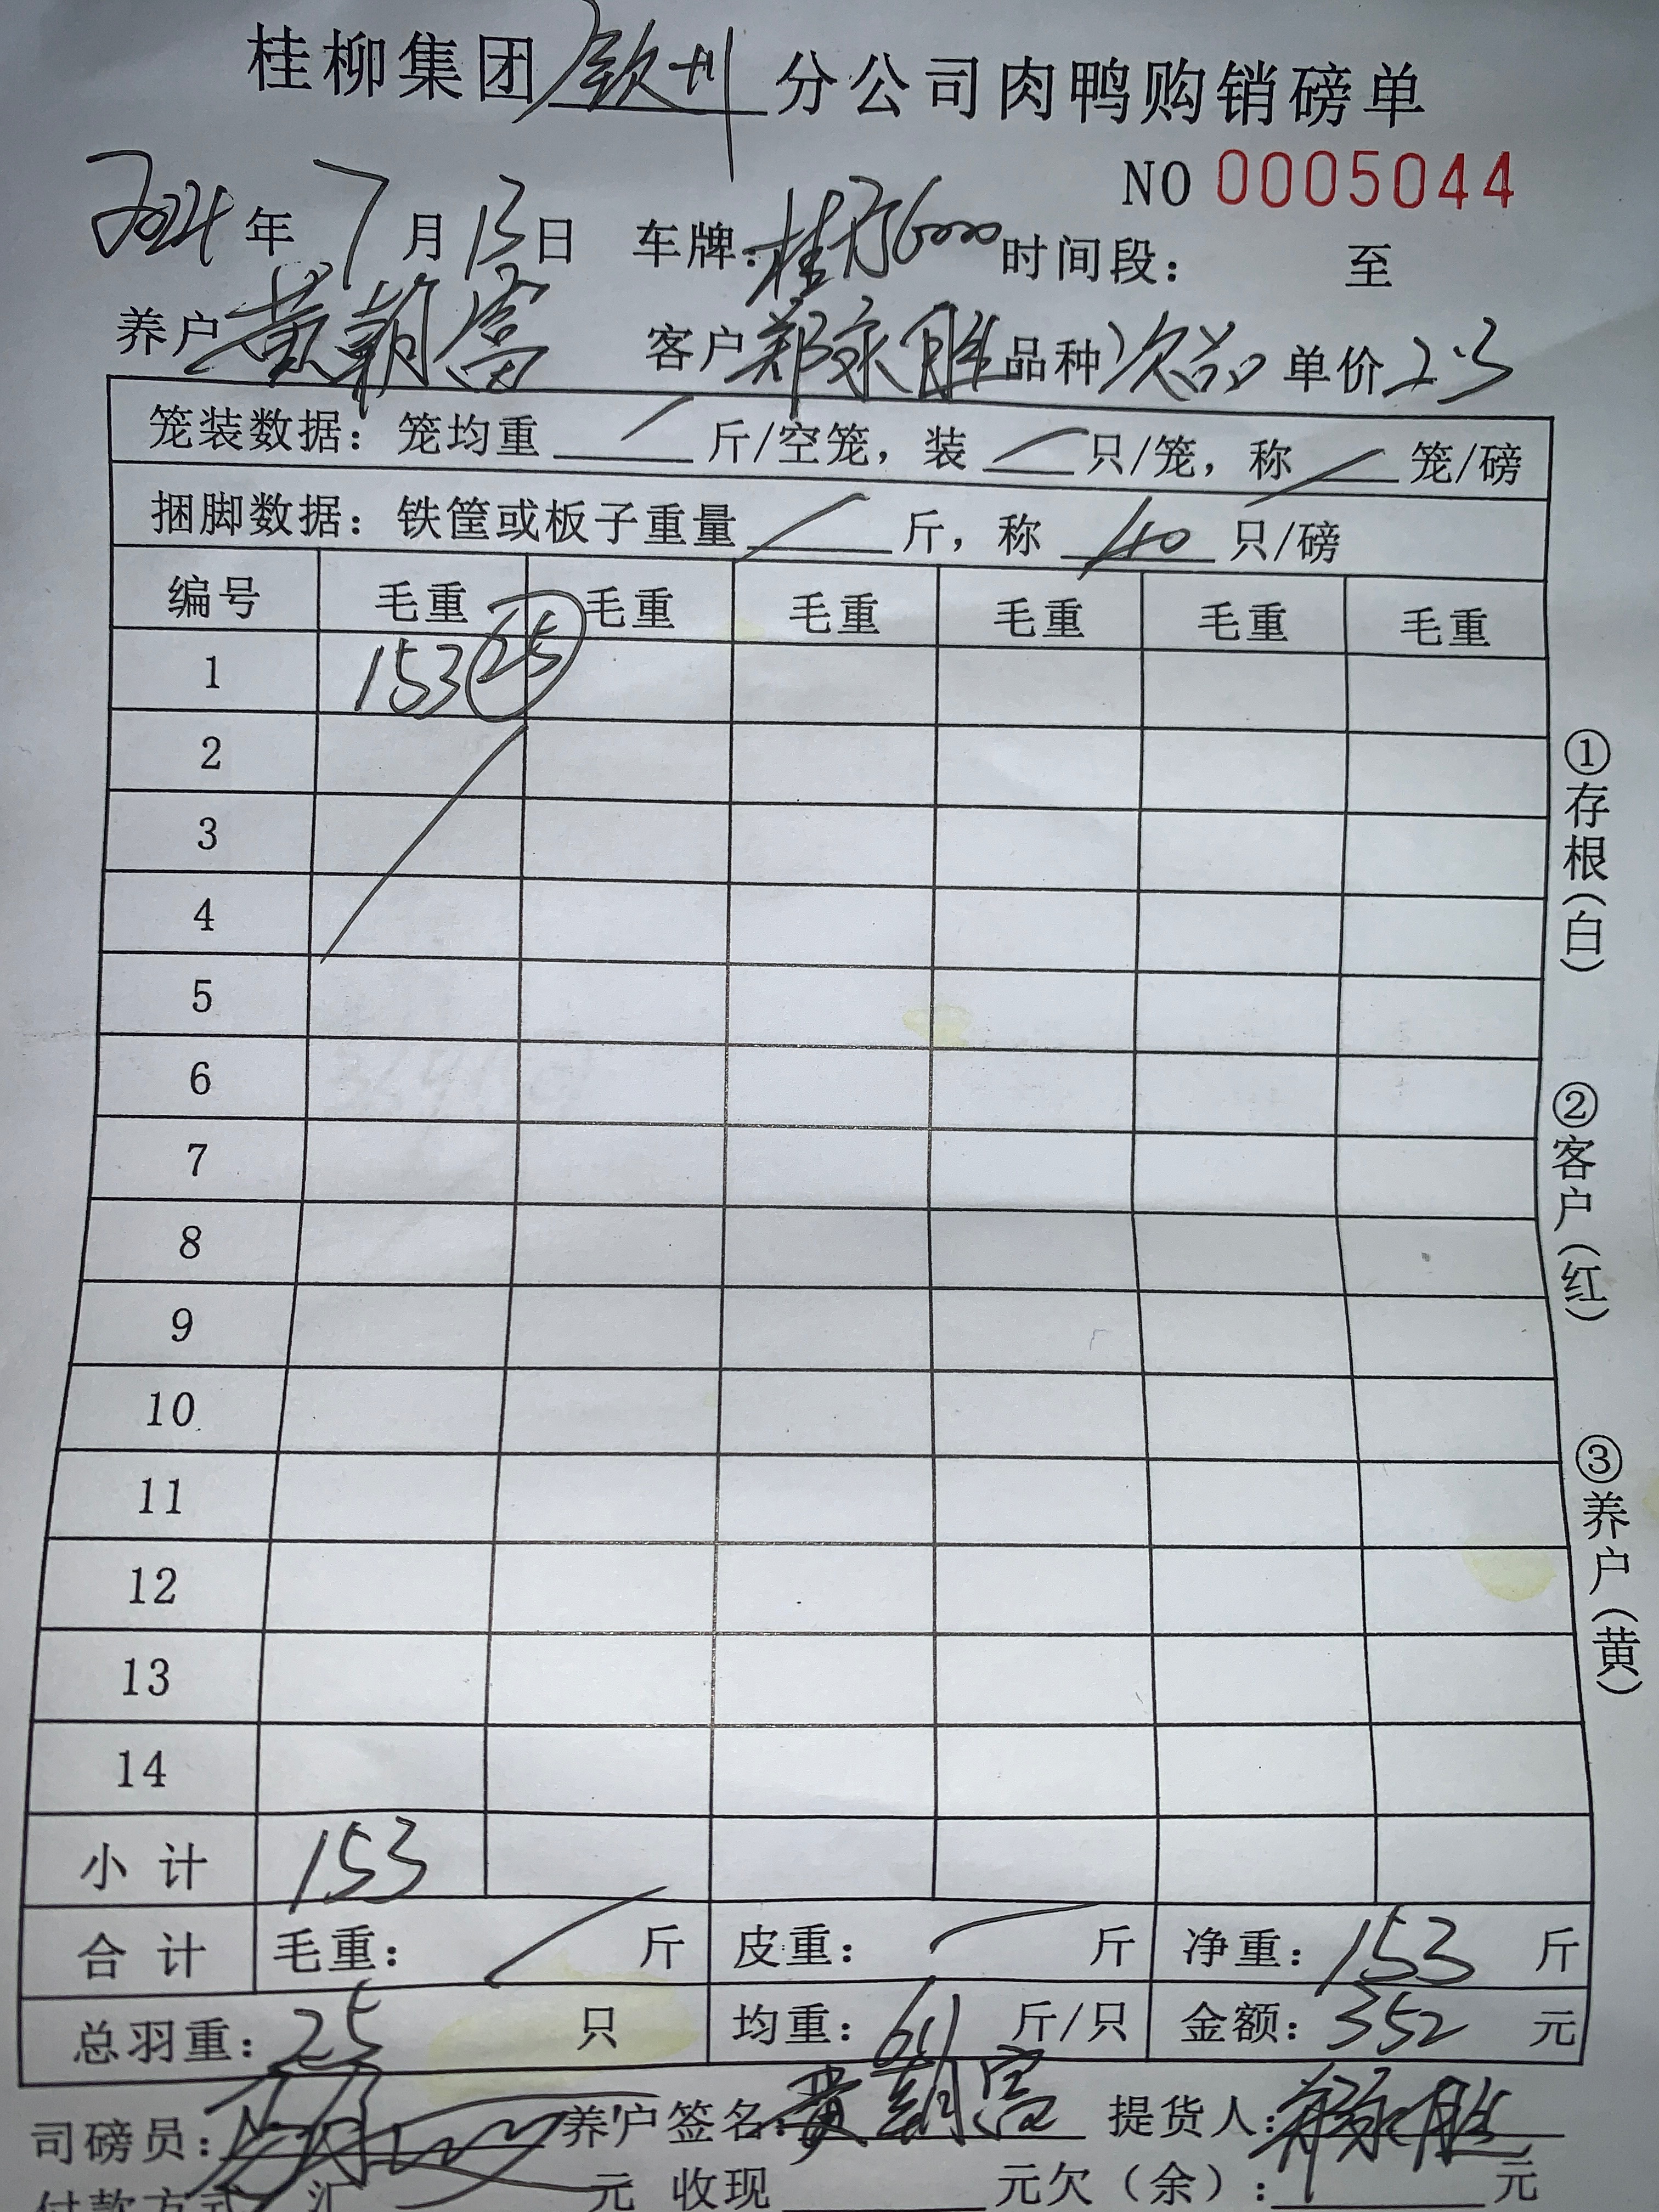 桂柳集团 钦州 分公司肉鸭购销磅单
NO 0005044
2024年 7月 13日 车牌: 桂 时间段: 至
养户 黄朝富 客户 郑永胜 品种 次品 单价 2.3
笼装数据: 笼均重 / 斤/空笼, 装 / 只/笼, 称 / 笼/磅
捆脚数据: 铁筐或板子重量 / 斤, 称 40 只/磅
编号 毛重 毛重 毛重 毛重 毛重 毛重
1 153 25
2
3
4
5
6
7
8
9
10
11
12
13
14
小计 153
合计 毛重: / 斤 皮重: / 斤 净重: 153 斤
总羽重: 25 只 均重: 6.1 斤/只 金额: 352 元
司磅员: 养户签名: 黄朝富 提货人: 郑永胜
付款方式 汇 元 收现 元欠(余): 元
①存根(白)
②客户(红)
③养户(黄)